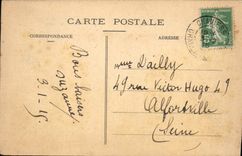 CARTE POSTALE
CORRESPONDANCE
ADRESSE
Bons baisers
Suzanne
3-1-15
Mme Dailly
49 rue Victor Hugo 49
Alfortville
(Seine)